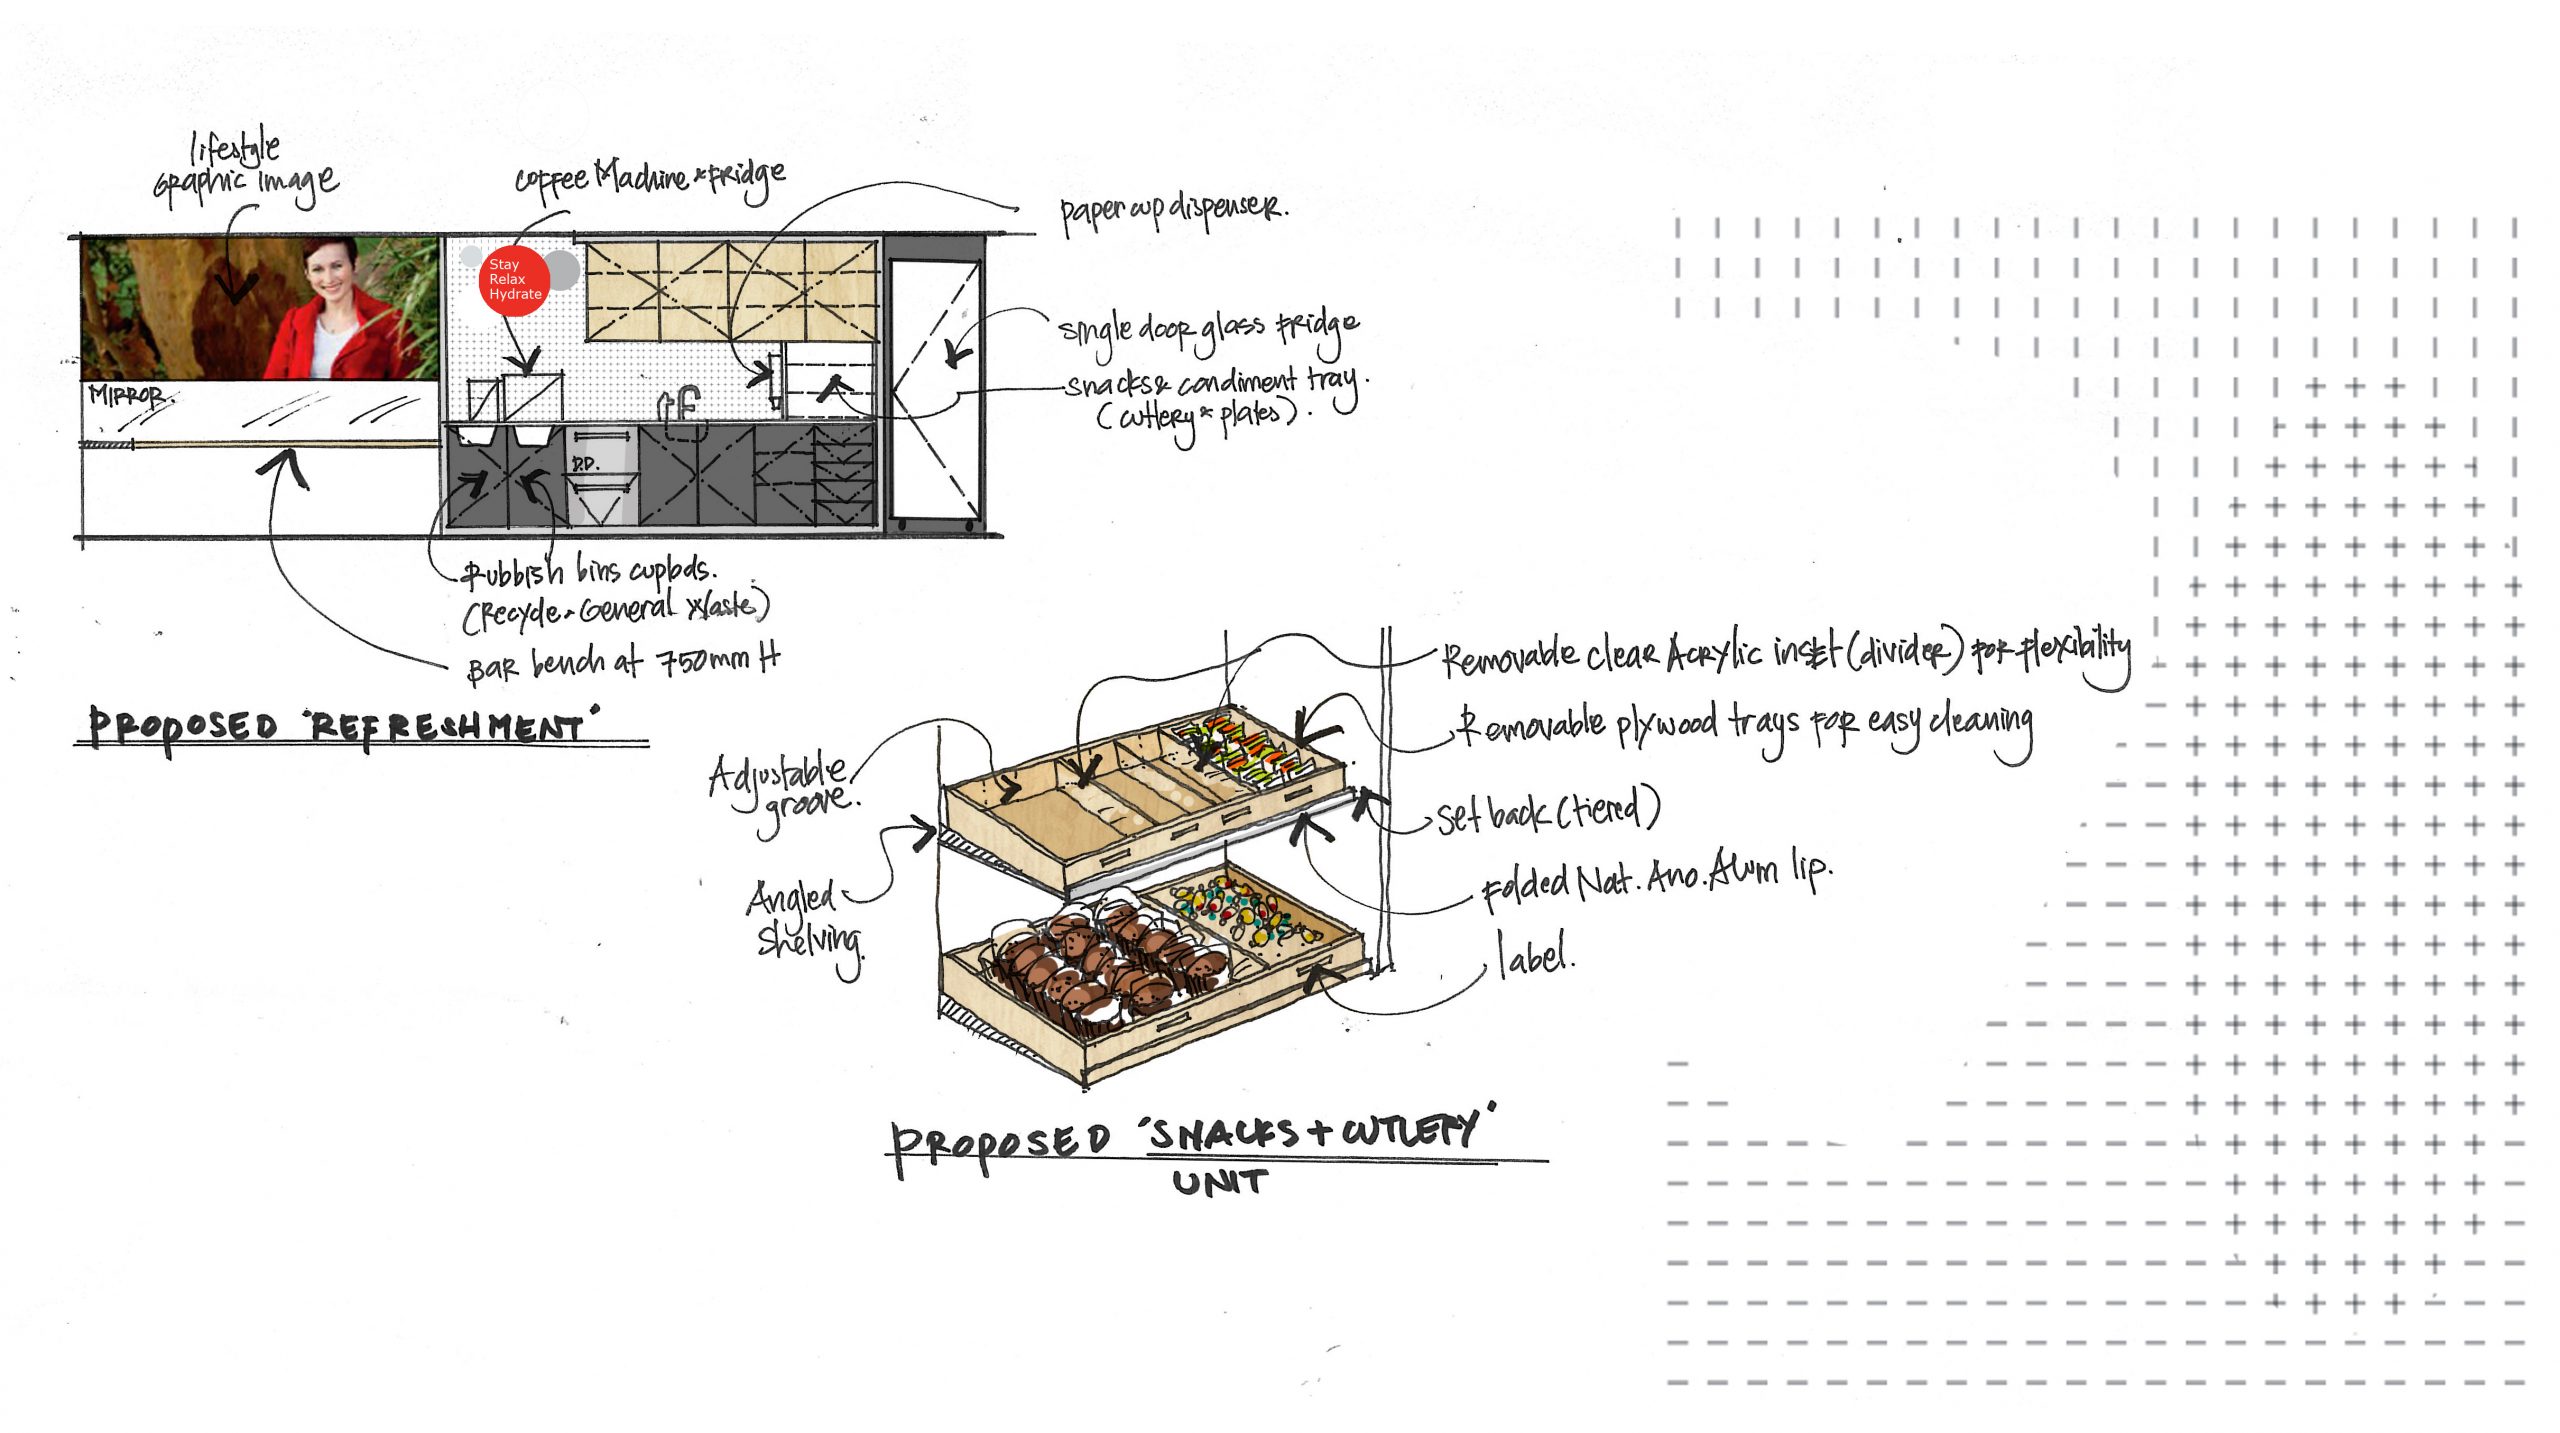 lifestyle
graphic image
coffee Machine & fridge
paper cup dispenser.
Stay
Relax
Hydrate
single door glass fridge
snacks & condiment tray.
(cutlery & plates).
MIRROR.
D.D.
Rubbish bins cupbds.
(Recycle & General Waste)
BAR bench at 750mm H
PROPOSED 'REFRESHMENT'
Removable clear Acrylic inset (divider) for flexibility
Removable plywood trays for easy cleaning
Adjustable
groove.
set back (tiered)
Folded Nat. Ano. Alum lip.
Angled
shelving.
label.
PROPOSED 'SNACKS + CUTLERY'
UNIT